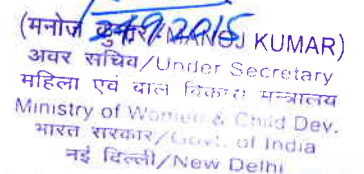 (मनोज कुमार/MANOJ KUMAR)
24/9/2015
अवर सचिव/Under Secretary
महिला एवं बाल विकास मन्त्रालय
Ministry of Women & Child Dev.
भारत सरकार/Govt. of India
नई दिल्ली/New Delhi